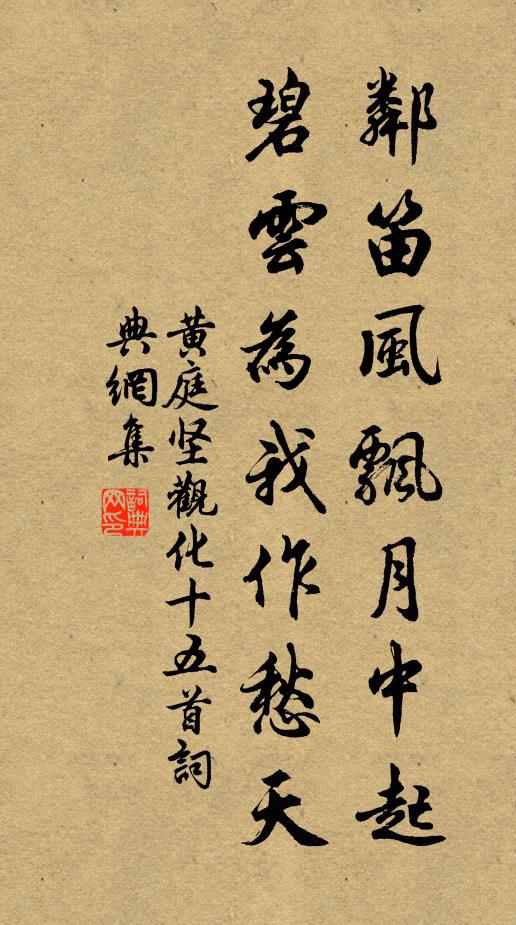 鄰笛風飄月中起
碧雲為我作愁天
黄庭坚觀化十五首詞
典網集
詞典
网印